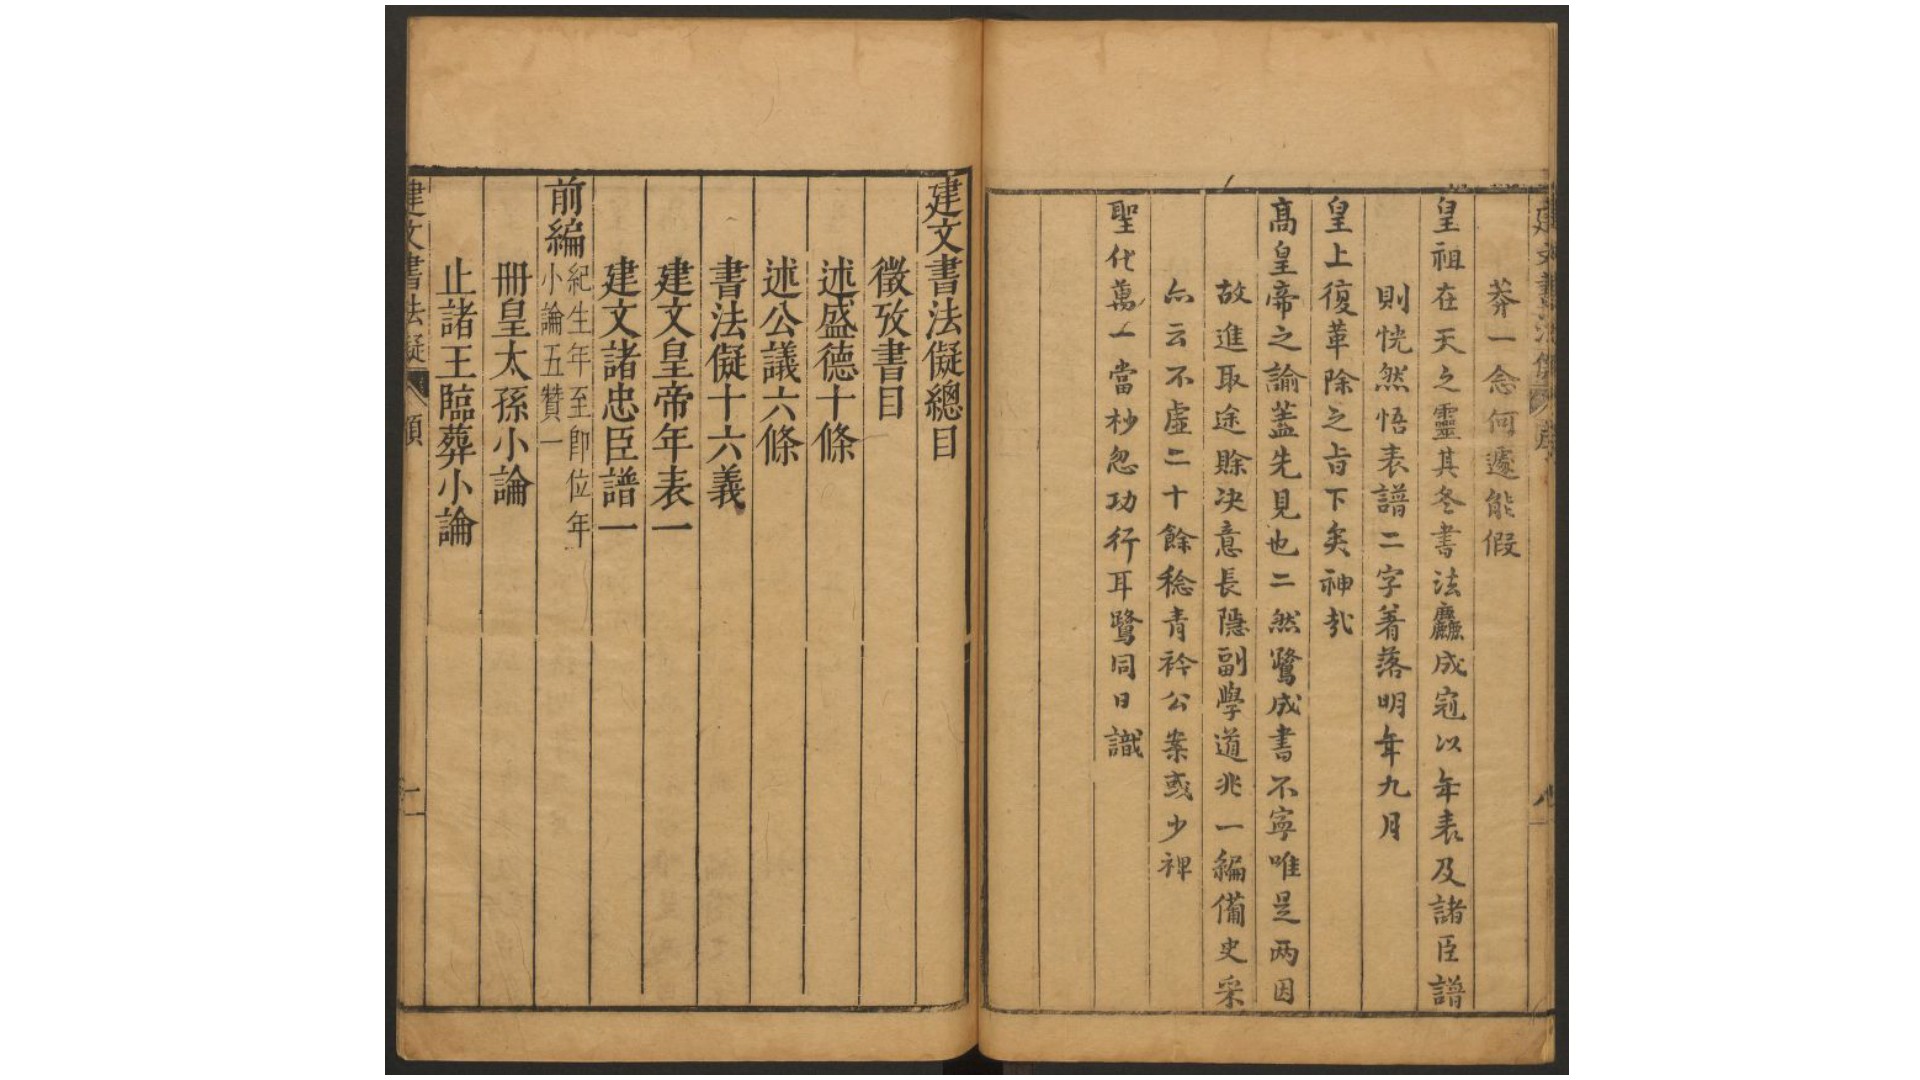 莽一念何遽能假
皇祖在天之靈其冬書法麤成冠以年表及諸臣譜
則恍然悟表譜二字著落明年九月
皇上復革除之旨下矣神哉
高皇帝之諭蓋先見也二然鷟成書不寧唯是两因
故進取途賖决意長隱副學道兆一編備史采
亦云不虛二十餘稔青衿公案或少裨
聖代萬一當杪忽功行耳鷟同日識
建文書法儗總目
徵攷書目
述盛德十條
述公議六條
書法儗十六義
建文皇帝年表一
建文諸忠臣譜一
前編 紀生年至卽位年
小論五贊一
冊皇太孫小論
止諸王臨葬小論
建文書法儗
二